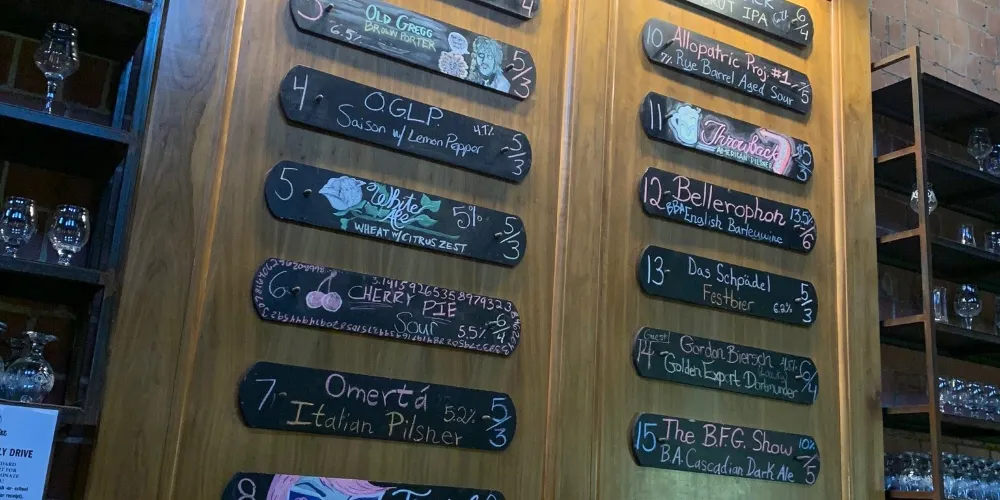 3
OLD GREGG
BROWN PORTER
6.5%
5/3
4
OGLP
4.1%
Saison w/ Lemon Pepper
5/3
5
White
Ale
5%
WHEAT W/ CITRUS ZEST
5/3
6
CHERRY PIE
Sour
5.5%
6/4
7
Omertá
Italian Pilsner
5.2%
5/3
8
BRUT IPA
6/4
10
Allopatric Proj. #1
Rye Barrel Aged Sour
7/5
11
Throwback
AMERICAN PILSNER
5/3
12-
Bellerophon
13.5%
BBA English Barleywine
6
13-
Das Schpädel
Festbier
6.2%
5/3
(Guest)
14
Gordon Biersch
Golden Export Dortmunder
6/4
15
The B.F.G. Show
10%
B.A. Cascadian Dark Ale
7/5
LY DRIVE